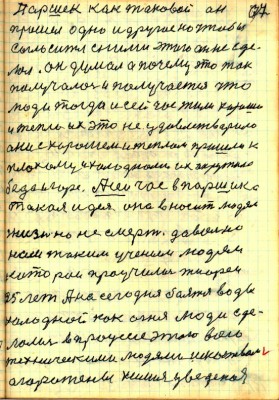 Паршек как таковой он
пришел одно и другое чтобы
согласится с ними этого он не сде-
лал. он думал а почему это так
получалось и получается что
люди тогда и сейчас жили хорошо
и тепло их это не удовлетворило
они с хорошего и теплого пришли к
плохому и холодному их окружило
беда и горе. А сейчас в паршека
такая идея она вносит людям
жизнь но не смерть. довольно
нам таким учением людям
которое проучились творец
25 лет. А на сегодня боятся воды
холодной как огня люди сде-
лались в процессе этого всего
техническими людьми искуственно
огорожены химия введеная